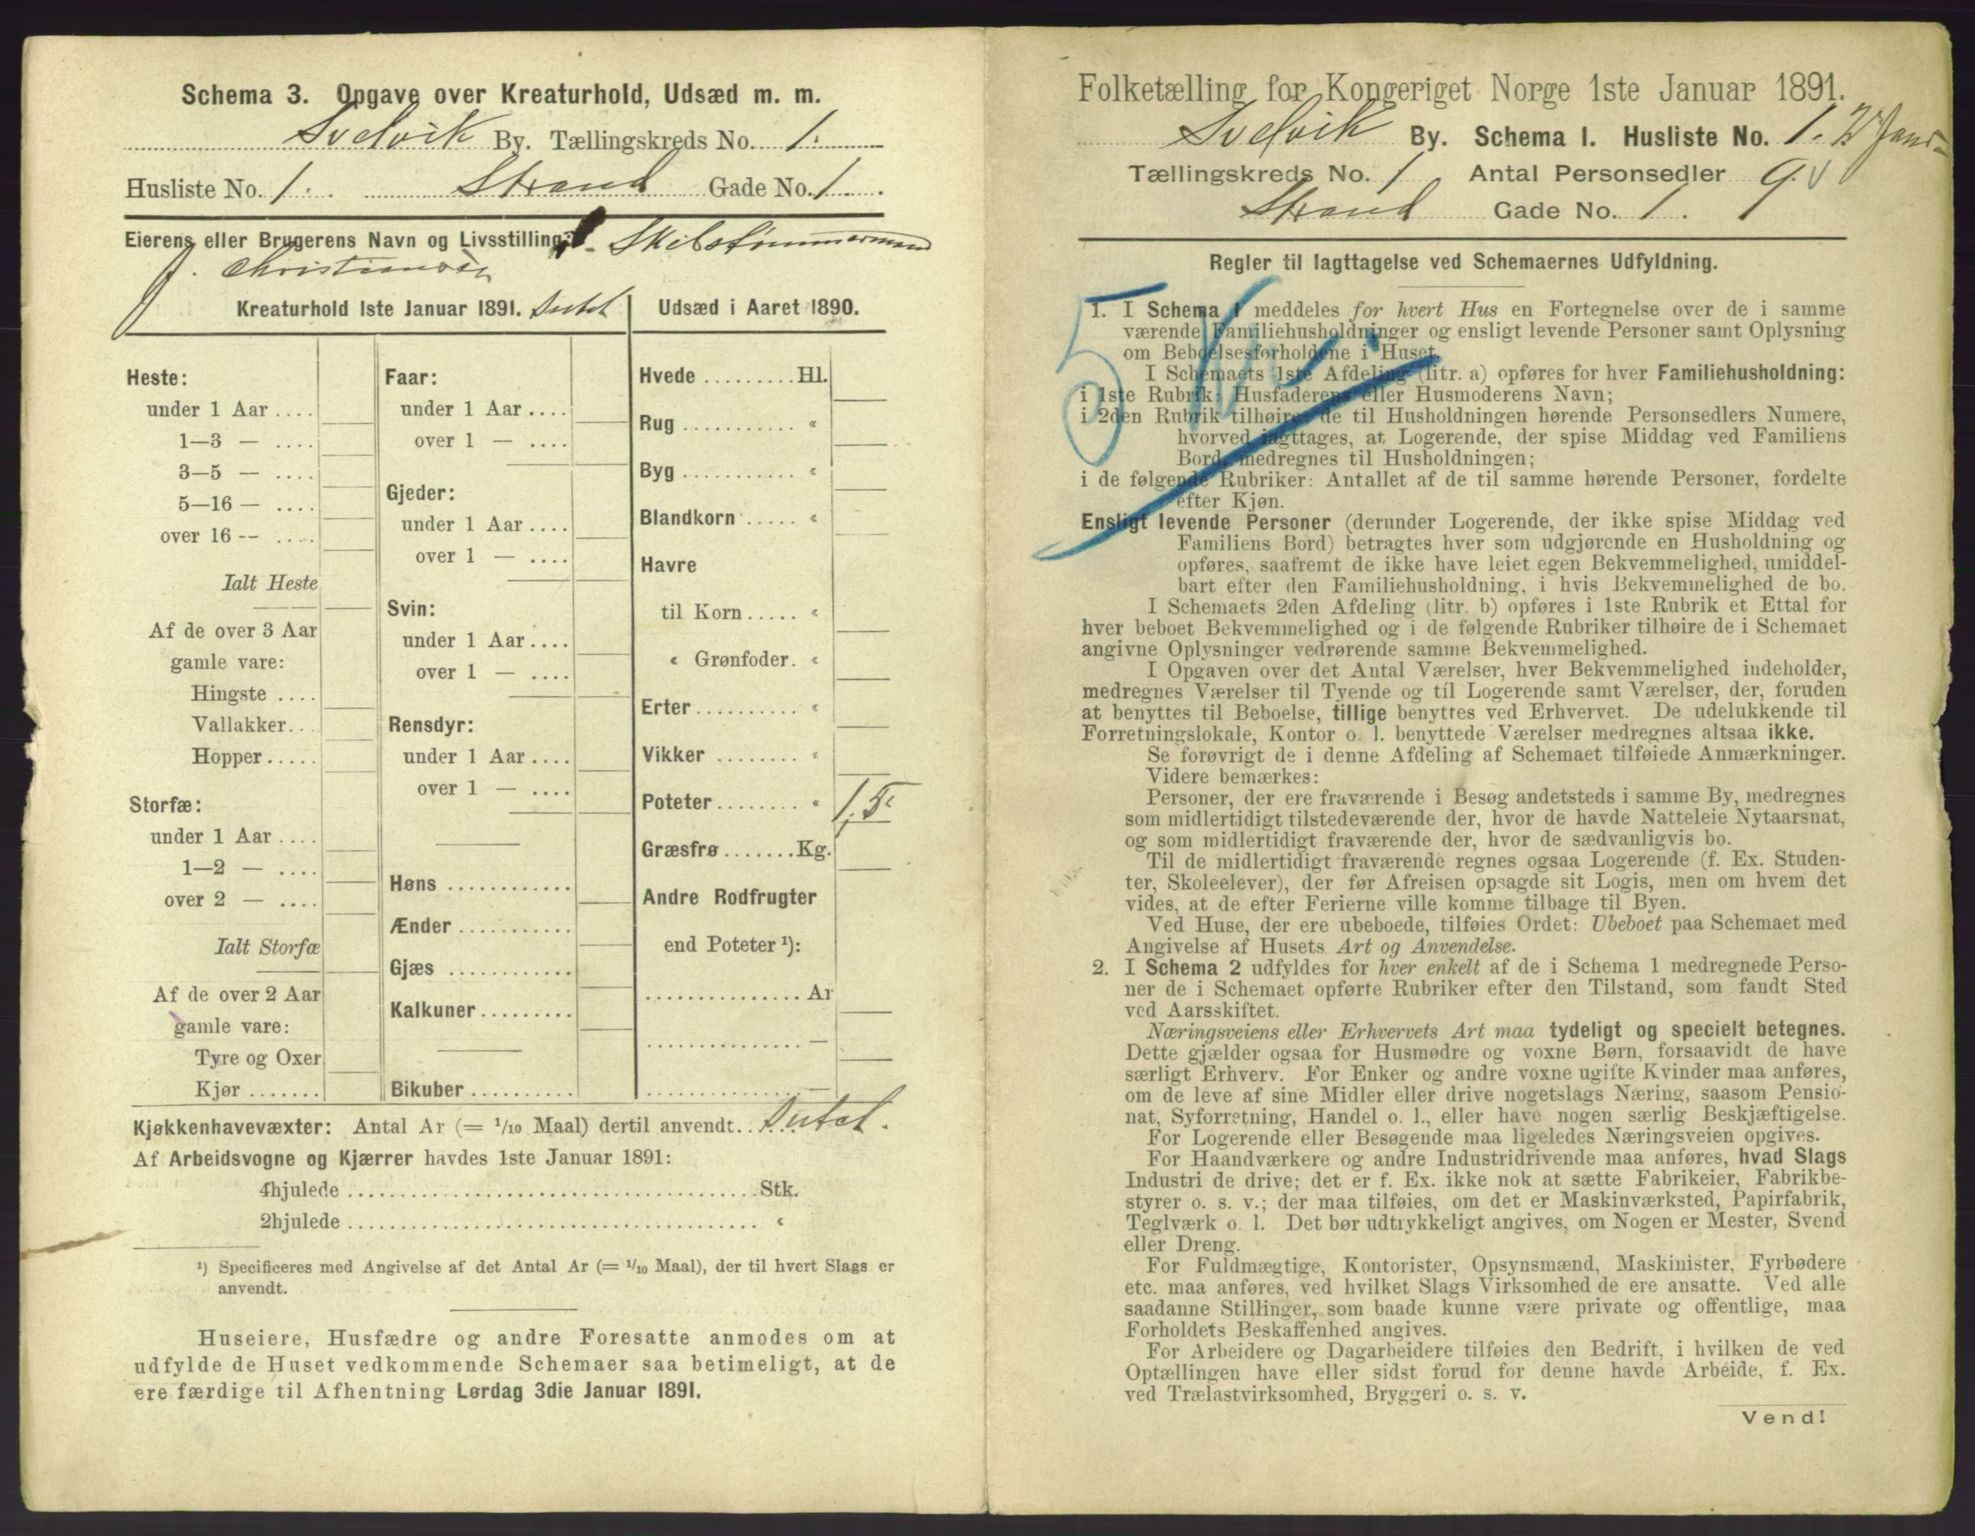 Schema 3. Opgave over Kreaturhold, Udsæd m. m.
Svelvik By. Tællingskreds No. 1.
Husliste No. 1. Strand Gade No. 1.
Eierens eller Brugerens Navn og Livsstilling: Skibstømmermand
J. Christiansen
Kreaturhold 1ste Januar 1891. Intet
Heste:
under 1 Aar ....
1—3 — ....
3—5 — ....
5—16 — ....
over 16 -- ....
Ialt Heste
Af de over 3 Aar
gamle vare:
Hingste ....
Vallakker...
Hopper.....
Storfæ:
under 1 Aar ....
1—2 — ....
over 2 — ....
Ialt Storfæ
Af de over 2 Aar
gamle vare:
Tyre og Oxer
Kjør .......
Faar:
under 1 Aar ....
over 1 — ....
Gjeder:
under 1 Aar ....
over 1 — ....
Svin:
under 1 Aar ....
over 1 — ....
Rensdyr:
under 1 Aar ....
over 1 — ....
Høns ............
Ænder ...........
Gjæs ............
Kalkuner.........
Bikuber..........
Udsæd i Aaret 1890.
Hvede .........Hl.
Rug ........... «
Byg ........... «
Blandkorn ..... «
Havre
til Korn..... «
« Grønfoder. «
Erter.......... «
Vikker ........ «
Poteter........ « 1,5
Græsfrø.......Kg.
Andre Rodfrugter
end Poteter ¹):
............... Ar
............... —
............... —
Kjøkkenhavevæxter: Antal Ar (= 1/10 Maal) dertil anvendt.. Intet.
Af Arbeidsvogne og Kjærrer havdes 1ste Januar 1891:
4hjulede ........................................Stk.
2hjulede ........................................ «
¹) Specificeres med Angivelse af det Antal Ar (= 1/10 Maal), der til hvert Slags er
anvendt.
Huseiere, Husfædre og andre Foresatte anmodes om at
udfylde de Huset vedkommende Schemaer saa betimeligt, at de
ere færdige til Afhentning Lørdag 3die Januar 1891.
Folketælling for Kongeriget Norge 1ste Januar 1891.
Svelvik By. Schema 1. Husliste No. 1.
Tællingskreds No. 1 Antal Personsedler 9.
Strand Gade No. 1.
Regler til Iagttagelse ved Schemaernes Udfyldning.
1. I Schema 1 meddeles for hvert Hus en Fortegnelse over de i samme
værende Familiehusholdninger og ensligt levende Personer samt Oplysning
om Beboelsesforholdene i Huset.
I Schemaets 1ste Afdeling (litr. a) opføres for hver Familiehusholdning:
i 1ste Rubrik: Husfaderens eller Husmoderens Navn;
i 2den Rubrik tilhøire de til Husholdningen hørende Personsedlers Numere,
hvorved iagttages, at Logerende, der spise Middag ved Familiens
Bord, medregnes til Husholdningen;
i de følgende Rubriker: Antallet af de til samme hørende Personer, fordelte
efter Kjøn.
Ensligt levende Personer (derunder Logerende, der ikke spise Middag ved
Familiens Bord) betragtes hver som udgjørende en Husholdning og
opføres, saafremt de ikke have leiet egen Bekvemmelighed, umiddel-
bart efter den Familiehusholdning, i hvis Bekvemmelighed de bo.
I Schemaets 2den Afdeling (litr. b) opføres i 1ste Rubrik et Ettal for
hver beboet Bekvemmelighed og i de følgende Rubriker tilhøire de i Schemaet
angivne Oplysninger vedrørende samme Bekvemmelighed.
I Opgaven over det Antal Værelser, hver Bekvemmelighed indeholder,
medregnes Værelser til Tyende og til Logerende samt Værelser, der, foruden
at benyttes til Beboelse, tillige benyttes ved Erhvervet. De udelukkende til
Forretningslokale, Kontor o. l. benyttede Værelser medregnes altsaa ikke.
Se forøvrigt de i denne Afdeling af Schemaet tilføiede Anmærkninger.
Videre bemærkes:
Personer, der ere fraværende i Besøg andetsteds i samme By, medregnes
som midlertidigt tilstedeværende der, hvor de havde Natteleie Nytaarsnat,
og som midlertidigt fraværende der, hvor de sædvanligvis bo.
Til de midlertidigt fraværende regnes ogsaa Logerende (f. Ex. Studen-
ter, Skoleelever), der før Afreisen opsagde sit Logis, men om hvem det
vides, at de efter Ferierne ville komme tilbage til Byen.
Ved Huse, der ere ubeboede, tilføies Ordet: Ubeboet paa Schemaet med
Angivelse af Husets Art og Anvendelse.
2. I Schema 2 udfyldes for hver enkelt af de i Schema 1 medregnede Perso-
ner de i Schemaet opførte Rubriker efter den Tilstand, som fandt Sted
ved Aarsskiftet.
Næringsveiens eller Erhvervets Art maa tydeligt og specielt betegnes.
Dette gjælder ogsaa for Husmødre og voxne Børn, forsaavidt de have
særligt Erhverv. For Enker og andre voxne ugifte Kvinder maa anføres,
om de leve af sine Midler eller drive nogetslags Næring, saasom Pensio-
nat, Syforretning, Handel o. l., eller have nogen særlig Beskjæftigelse.
For Logerende eller Besøgende maa ligeledes Næringsveien opgives.
For Haandværkere og andre Industridrivende maa anføres, hvad Slags
Industri de drive; det er f. Ex. ikke nok at sætte Fabrikeier, Fabrikbe-
styrer o. s. v.; der maa tilføies, om det er Maskinværksted, Papirfabrik,
Teglværk o. l. Det bør udtrykkeligt angives, om Nogen er Mester, Svend
eller Dreng.
For Fuldmægtige, Kontorister, Opsynsmænd, Maskinister, Fyrbødere
etc. maa anføres, ved hvilket Slags Virksomhed de ere ansatte. Ved alle
saadanne Stillinger, som baade kunne være private og offentlige, maa
Forholdets Beskaffenhed angives.
For Arbeidere og Dagarbeidere tilføies den Bedrift, i hvilken de ved
Optællingen have eller sidst forud for denne havde Arbeide, f. Ex.
ved Trælastvirksomhed, Bryggeri o. s. v.
Vend!